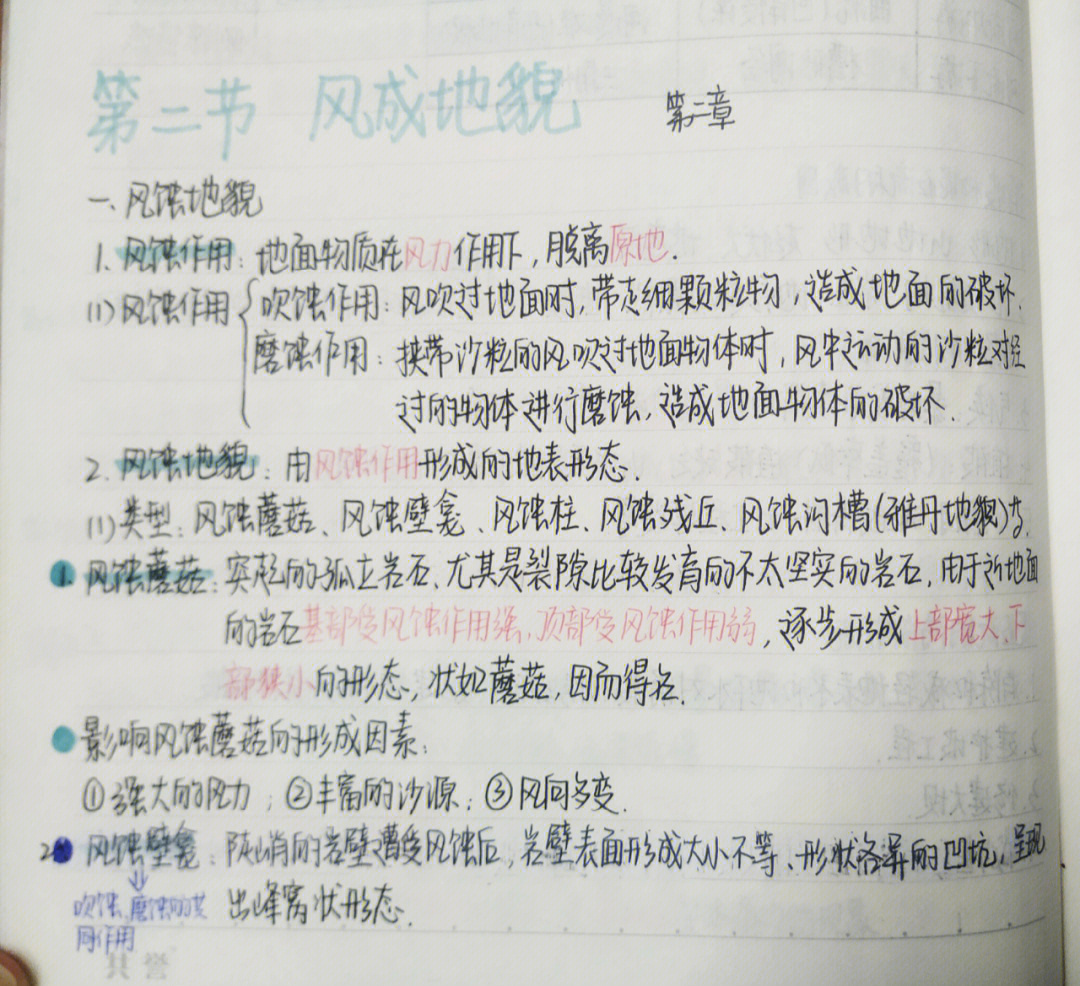 第二节 风成地貌 第二章
一、风蚀地貌
1. 风蚀作用：地面物质在风力作用下，脱离原地.
(1)风蚀作用{吹蚀作用：风吹过地面时，带走细颗粒物，造成地面的破坏.
磨蚀作用：挟带沙粒的风吹过地面物体时，风中运动的沙粒对经
过的物体进行磨蚀，造成地面物体的破坏.
2. 风蚀地貌：由风蚀作用形成的地表形态.
(1)类型：风蚀蘑菇、风蚀壁龛、风蚀柱、风蚀残丘、风蚀沟槽(雅丹地貌)等.
1. 风蚀蘑菇：突起的孤立岩石、尤其是裂隙比较发育的不太坚实的岩石，由于近地面
的岩石基部受风蚀作用强、顶部受风蚀作用弱，逐步形成上部宽大、下
部狭小的形态，状如蘑菇，因而得名.
影响风蚀蘑菇的形成因素：
①强大的风力；②丰富的沙源；③风向多变.
2 风蚀壁龛：陡峭的岩壁遭受风蚀后，岩壁表面形成大小不等、形状各异的凹坑，呈现
出峰窝状形态.
吹蚀、磨蚀的共
同作用